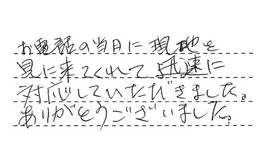 お電話の当日に現地を
見に来てくれて迅速に
対応していただきました。
ありがとうございました。